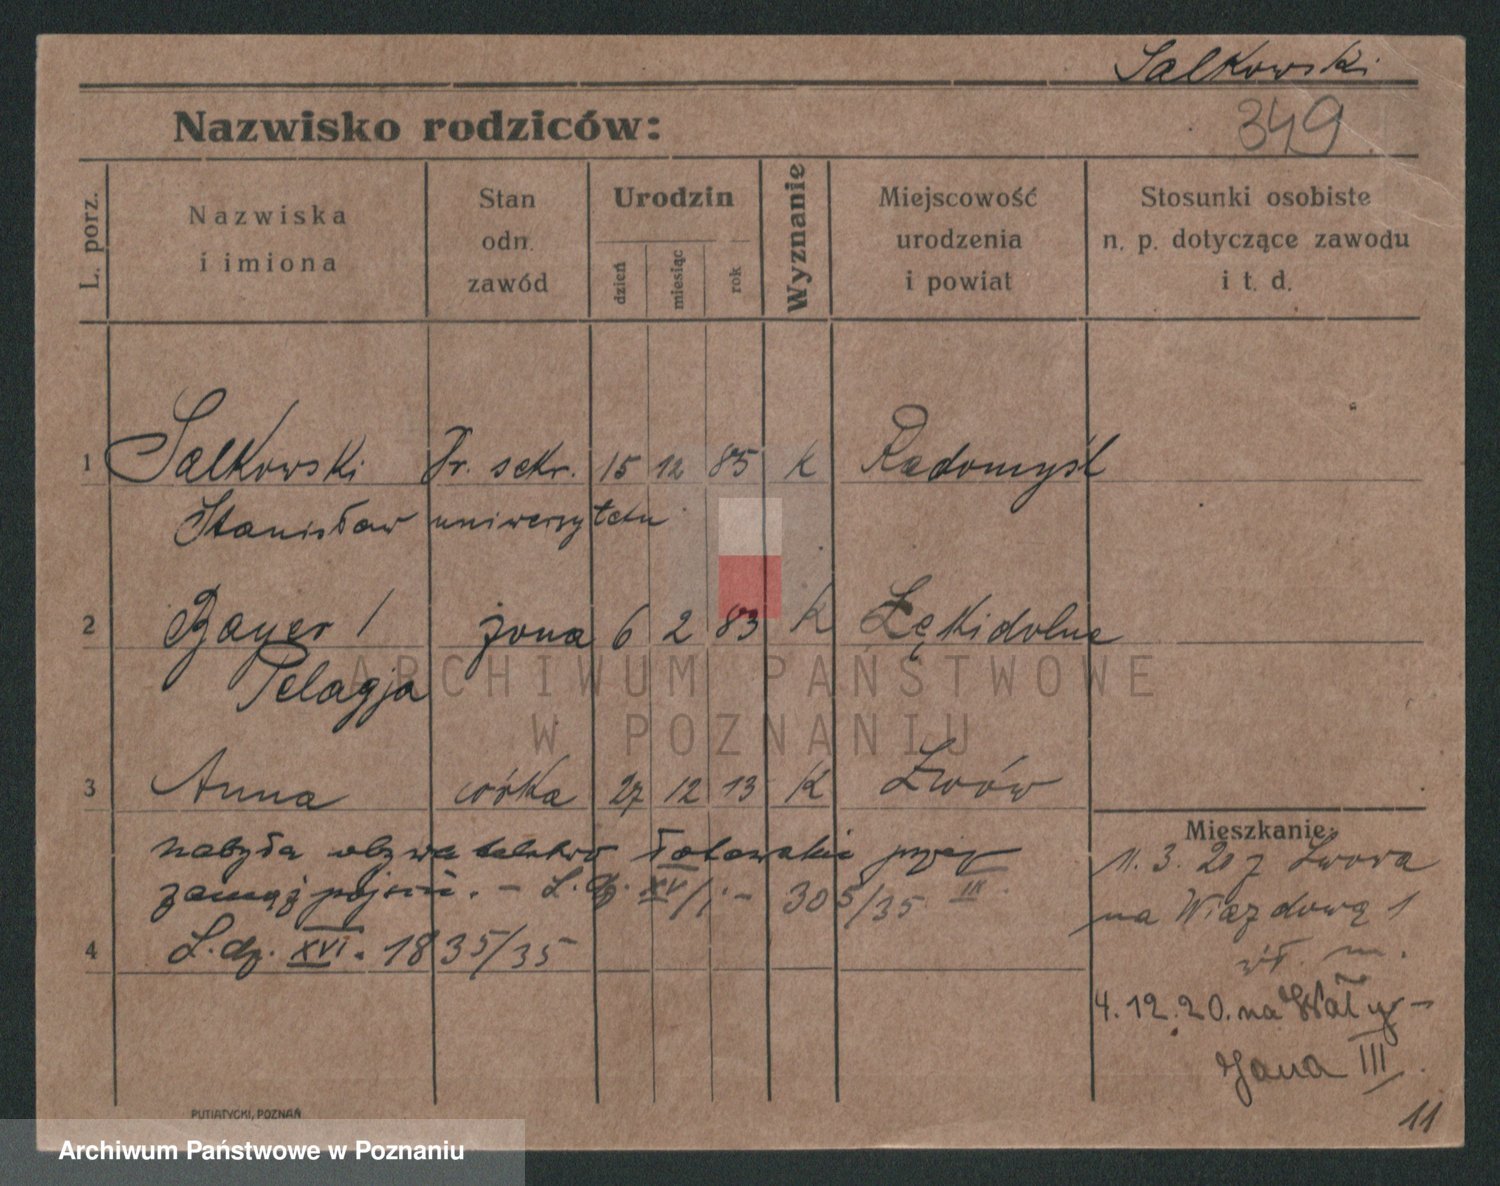 Salkowski
Nazwisko rodziców:
349
L. porz.
Nazwiska
i imiona
Stan
odn.
zawód
Urodzin
dzień
miesiąc
rok
Wyznanie
Miejscowość
urodzenia
i powiat
Stosunki osobiste
n. p. dotyczące zawodu
i t. d.
1 Salkowski sekr. 15 12 85 k Radomyśl
Stanisław uniwersytetu
2 Bayer / żona 6 2 83 k Łękidolne
Pelagja
3 Anna córka 27 12 13 K Lwów
nabyła obywatelstwo łotewskie przez
zamąż pójście. - L. dz. XV/1. - 305/35 IX.
4 L. dz. XVI. 1835/35
Mieszkanie:
11. 3. 20 z Lwowa
na Wiazdową 1
wł. m.
4. 12. 20. na Wały
Jana III.
11
PUTIATYCKI, POZNAŃ
ARCHIWUM PAŃSTWOWE
W POZNANIU
Archiwum Państwowe w Poznaniu